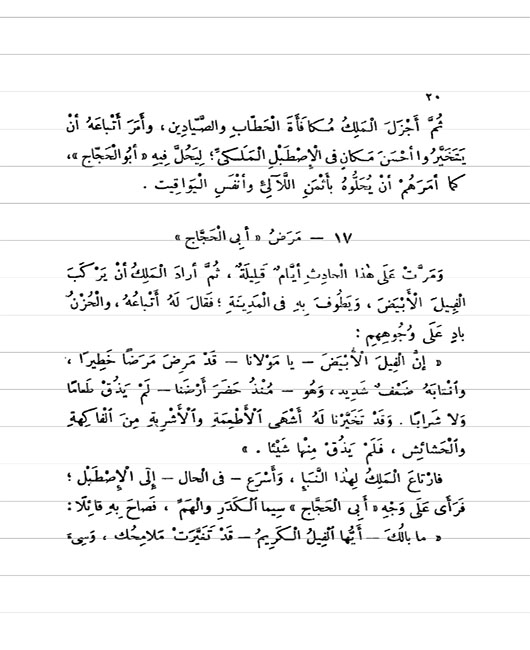 ٢٠
ثُمَّ أَجْزَلَ الْمَلِكُ مُكافَأَةَ الْحَطّابِ والصَّيّادِين، وأَمَرَ أَتْباعَهُ أَنْ
يَتَخَيَّرُوا أحْسَنَ مَكانٍ فى الْإِصْطَبْلِ الْمَلَكىِّ؛ لِيَحُلَّ فِيهِ «أبُوالْحَجّاجِ»،
كما أمَرَهُمْ أنْ يُحَلُّوهُ بأَثْمَنِ اللَّآلِئِ وأنْفَسِ الْيَواقِيت .
١٧ — مَرَضُ «أبِى الْحَجَّاجِ»
وَمَرَّتْ عَلَى هٰذا الْحادِثِ أيَّامٌ قَلِيلَةٌ ، ثُمَّ أرادَ الْمَلِكُ أنْ يَرْكَبَ
الْفِيلَ الْأَبْيَضَ ، وَيَطُوفَ بِهِ فى الْمَدِينَةِ ؛ فَقالَ لَهُ أَتْباعُهُ ، والْحُزْنُ
بادٍ عَلَى وُجُوهِهِم :
« إنَّ الْفِيلَ الْأَبْيَضَ — يا مَوْلانا — قَدْ مَرِضَ مَرَضًا خَطِيرًا ،
وانْتابَهُ ضَعْفٌ شَدِيد، وَهُو — مُنْذُ حَضَرَ أَرْضَنا — لَمْ يَذُقْ طَعامًا
وَلا شَرابًا . وَقَدْ تَخَيَّرْنا لَهُ أَشْهَى الْأَطْعِمَةِ والْأَشْرِبَةِ مِنَ الْفاكِهةِ
والْحَشائِش ، فَلَمْ يَذُقْ مِنْها شَيْئًا . »
فارْتاعَ الْمَلِكُ لِهٰذا النَّبَإِ ، وَأَسْرَعَ — فى الْحال — إِلَى الْإِصْطَبْل ؛
فَرَأَى عَلَى وَجْهِ «أَبِى الْحَجَّاجِ» سِيما الْكَدَرِ والْهَمِّ ، فَصاحَ بِهِ قائِلًا :
« ما بالُكَ — أيُّها الْفِيلُ الْكَرِيمُ — قَدْ تَغَيَّرَتْ مَلامِحُك ، وَسِىءَ